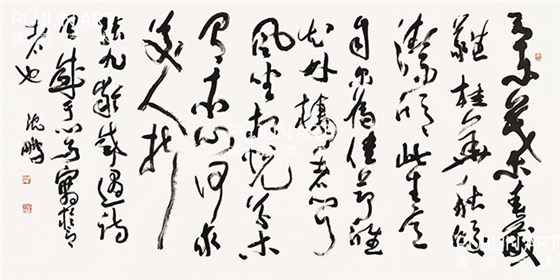 蘭葉春葳
蕤桂華秋皎
潔欣欣此生意
自爾為佳節誰
知林棲者聞
風坐相悦草木
有本心何求
美人折
張九齡感遇詩
沈鵬
PUJUN ART